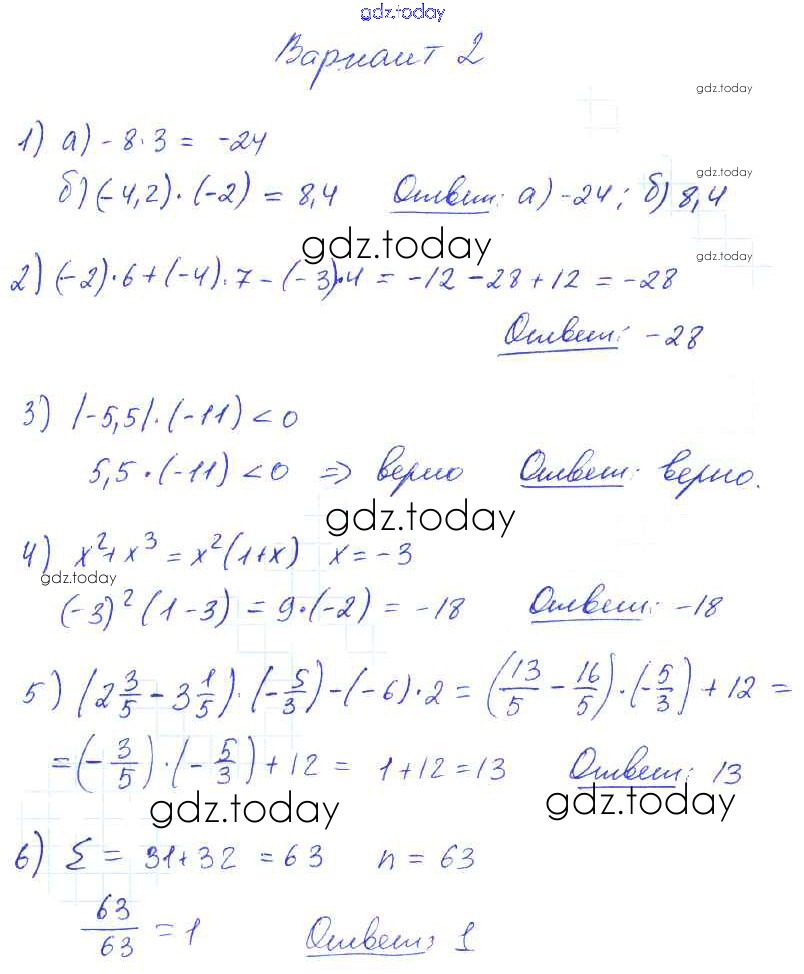 gdz.today
Вариант 2
gdz.today
1) а) -8·3 = -24
gdz.today
б) (-4,2)·(-2) = 8,4 Ответ: а) -24; б) 8,4
gdz.today
gdz.today
2) (-2)·6+(-4)·7-(-3)·4 = -12-28+12 = -28
Ответ: -28
3) |-5,5|·(-11) < 0
5,5·(-11) < 0 => верно Ответ: верно.
gdz.today
4) x²+x³ = x²(1+x) x = -3
gdz.today
(-3)²(1-3) = 9·(-2) = -18 Ответ: -18
5) (2 3/5 - 3 1/5)·(-5/3)-(-6)·2 = (13/5 - 16/5)·(-5/3)+12 =
= (-3/5)·(-5/3)+12 = 1+12 = 13 Ответ: 13
gdz.today gdz.today
6) Σ = 31+32 = 63 n = 63
63/63 = 1 Ответ: 1